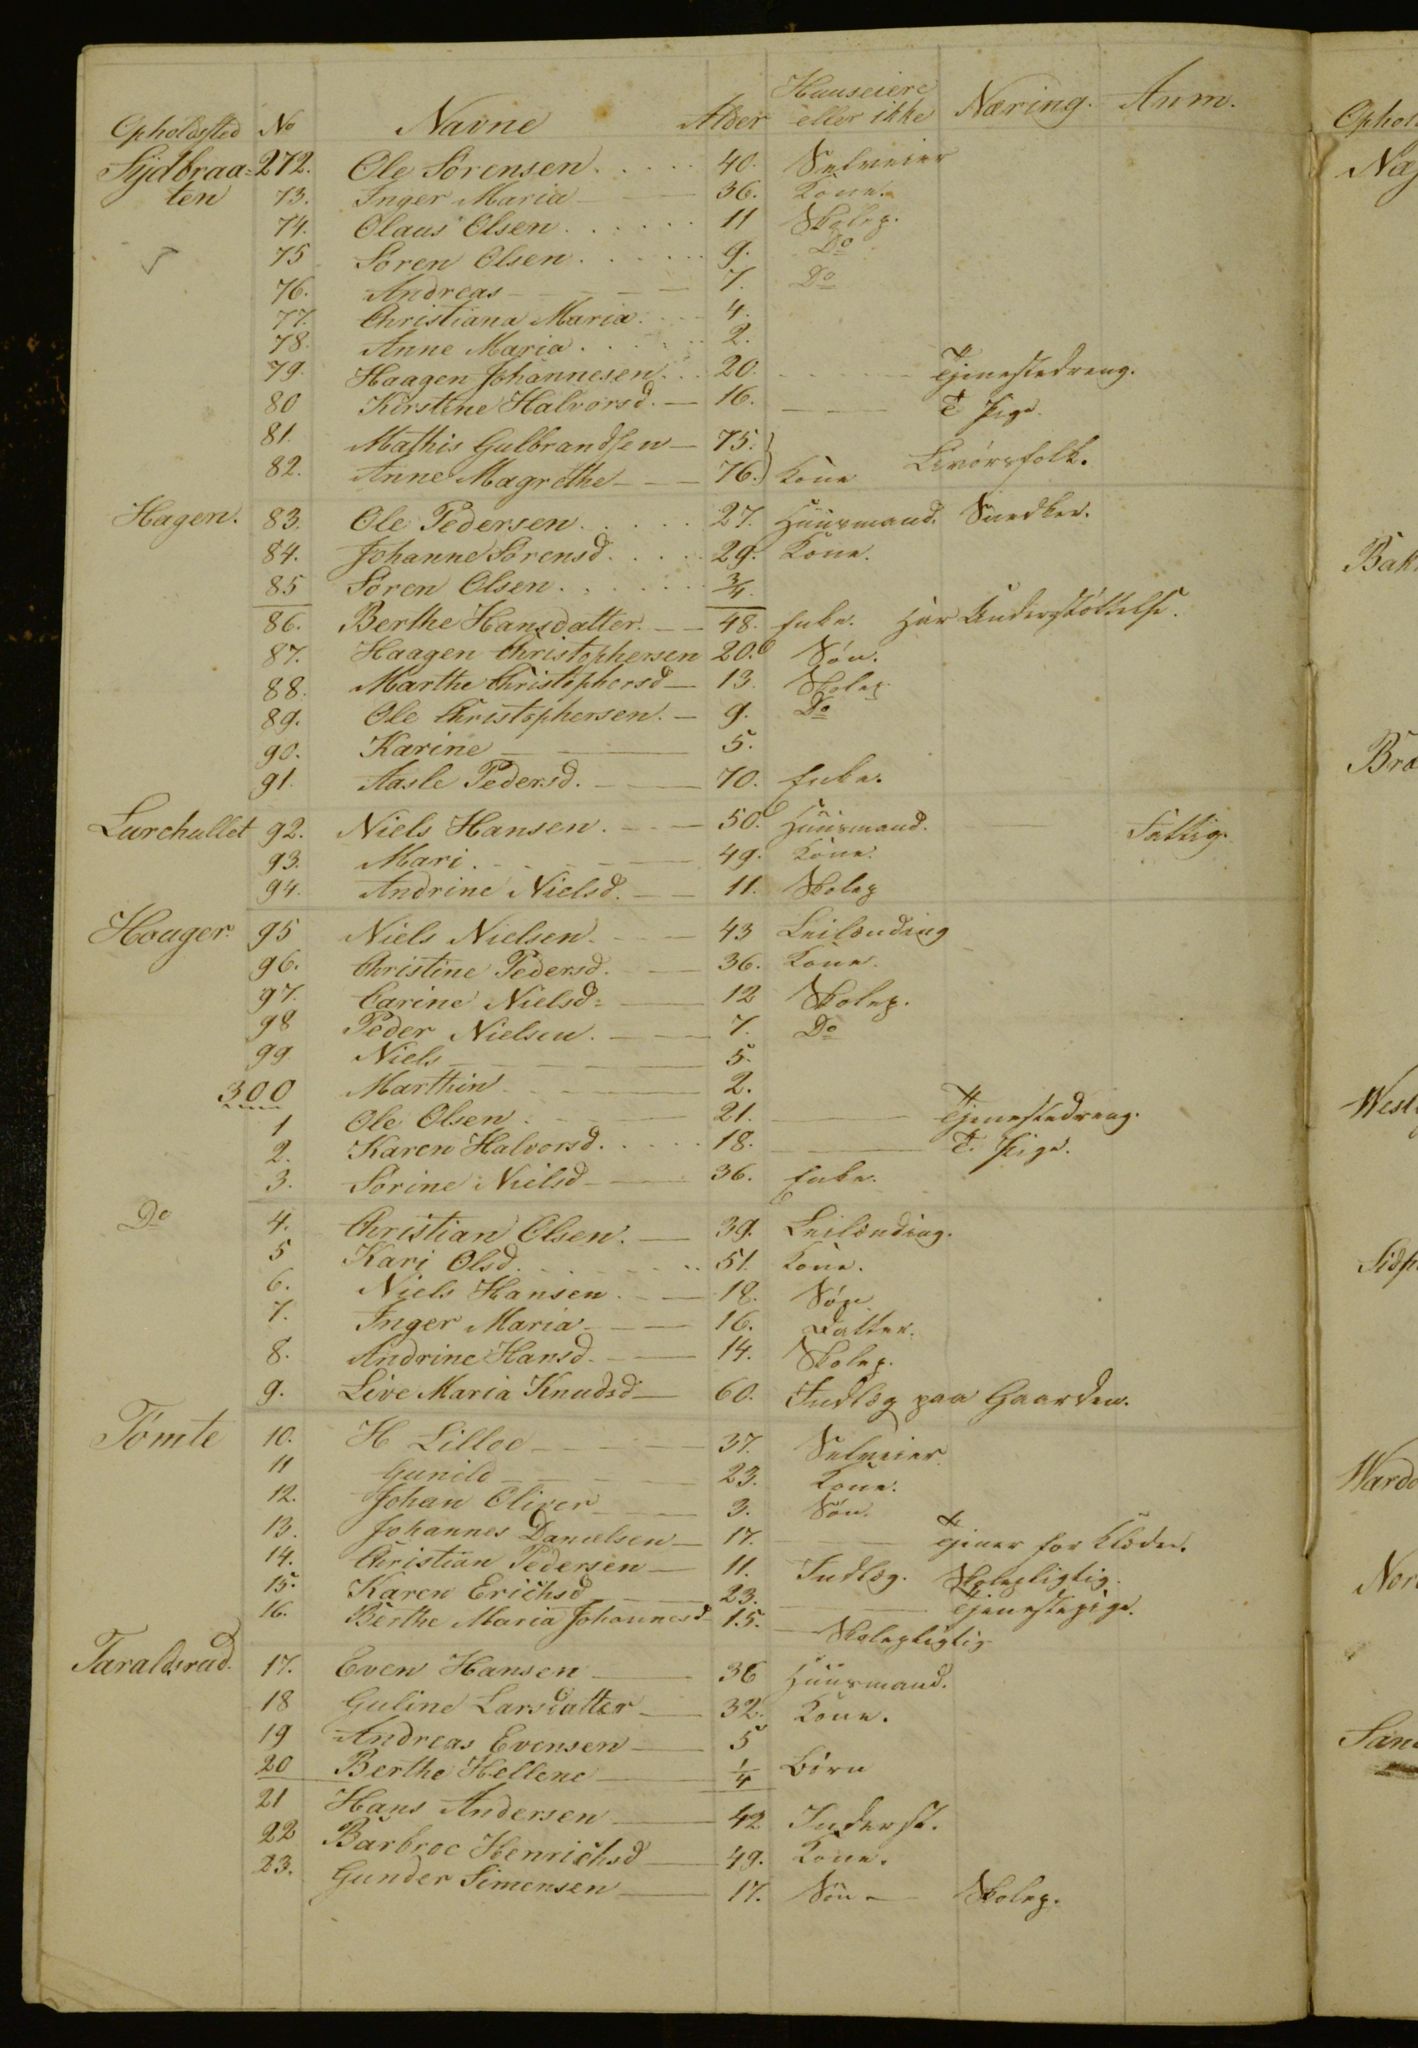 Opholdsted No Navne Alder Huuseiere eller ikke Næring. Anm.
Sydbraa= 272. Ole Sörensen. 40. Selveier
ten 73. Inger Maria 36. Kone.
74. Olaus Olsen 11 Skolep.
75 Sören Olsen 9. Do
76. Andreas 7. Do
77. Christiana Maria 4.
78. Anne Maria 2.
79. Haagen Johannesen 20. Tjenestedreng.
80 Kirstine Halvorsd. 16. T. Pige.
81. Mathis Gulbrandsen 75.
82. Anne Magrethe 76. Kone Livörsfolk.
Hagen. 83. Ole Pedersen 27. Huusmand. Snedker.
84. Johanne Sörensd. 29. Kone.
85 Sören Olsen 3/4.
86. Berthe Hansdatter. 48. Enke. Har Understöttelse.
87. Haagen Christophersen 20. Sön.
88. Marthe Christophersd 13. Skolep.
89. Ole Christophersen. 9. Do
90. Karine 5.
91. Aasle Pedersd. 70. Enke.
Lurchullet 92. Niels Hansen. 50. Huusmand. Fattig.
93. Mari 49. Kone.
94. Andrine Nielsd. 11. Skolep
Houger. 95 Niels Nielsen. 43 Leilending
96. Christine Pedersd. 36. Kone.
97. Carine Nielsd. 12 Skolep.
98 Peder Nielsen. 7. Do
99 Niels 5.
300 Marthin 2.
1 Ole Olsen 21. Tjenestedreng.
2. Karen Halvorsd. 18. T. Pige.
3. Sörine Nielsd 36. Enke.
Do 4. Christian Olsen. 39. Leilending.
5 Kari Olsd. 51. Kone.
6. Niels Hansen. 18. Sön
7. Inger Maria 16. Datter.
8. Andrine Hansd. 14. Skolep.
9. Live Maria Knudsd 60. Indlæg paa Gaarden.
Tömte 10. H Lilloe 37. Selveier.
11 Gunild 23. Kone.
12. Johan Oliver 3. Sön.
13. Johannes Danielsen 17. Tjener for Klæder.
14. Christian Pedersen 11. Indlæg. Skolepligtig.
15. Karen Erichsd 23. Tjenestepige.
16. Berthe Maria Johannesd 15. Skolepligtig
Taraldsrud. 17. Even Hansen 36 Huusmand.
18 Guline Larsdatter 32. Kone.
19 Andreas Evensen 5
20 Berthe Hellene 1/4 Börn
21 Hans Andersen 42 Inderst.
22 Barbroe Henrichsd 49. Kone.
23. Gunder Simensen 17. Sön Skolep.
Ophol
Næ
Bak
Bra
West
Sidp
Ward
Nor
San